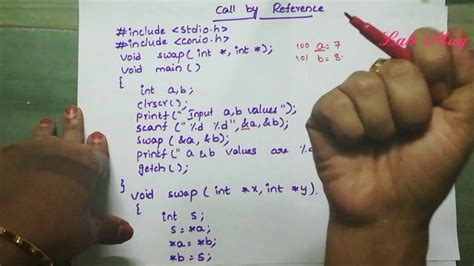 Call by Reference
#include <stdio.h>
#include <conio.h>
void swap(int *, int *);
void main()
{
int a,b;
clrscr();
printf("Input a,b values");
scanf("%d %d", &a, &b);
swap(&a, &b);
printf("a & b values are %d
getch();
}
void swap(int *x, int *y)
{
int s;
s = *a;
*a = *b;
*b = s;
100 a = 7
101 b = 8
Lab Mug